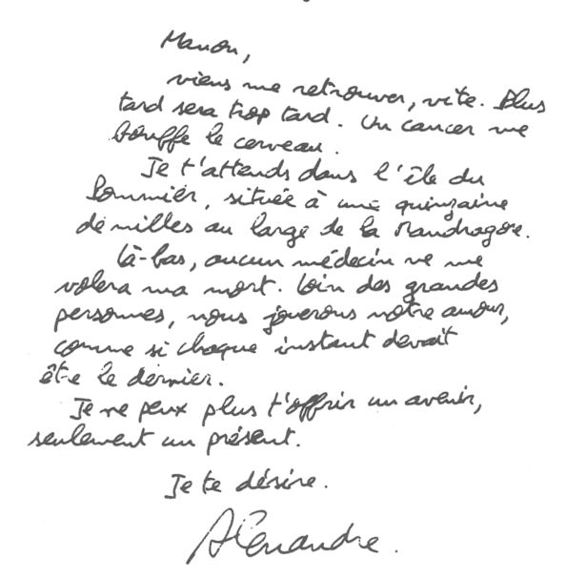 Manon,
viens me retrouver, vite. Plus
tard sera trop tard. Un cancer me
bouffe le cerveau.
Je t'attends dans l'île du
Pommier, située à une quinzaine
de milles au large de la Mandragore.
Là-bas, aucun médecin ne me
volera ma mort. Loin des grandes
personnes, nous jouerons notre amour,
comme si chaque instant devait
être le dernier.
Je ne peux plus t'offrir un avenir,
seulement un présent.
Je te désire.
Alexandre.